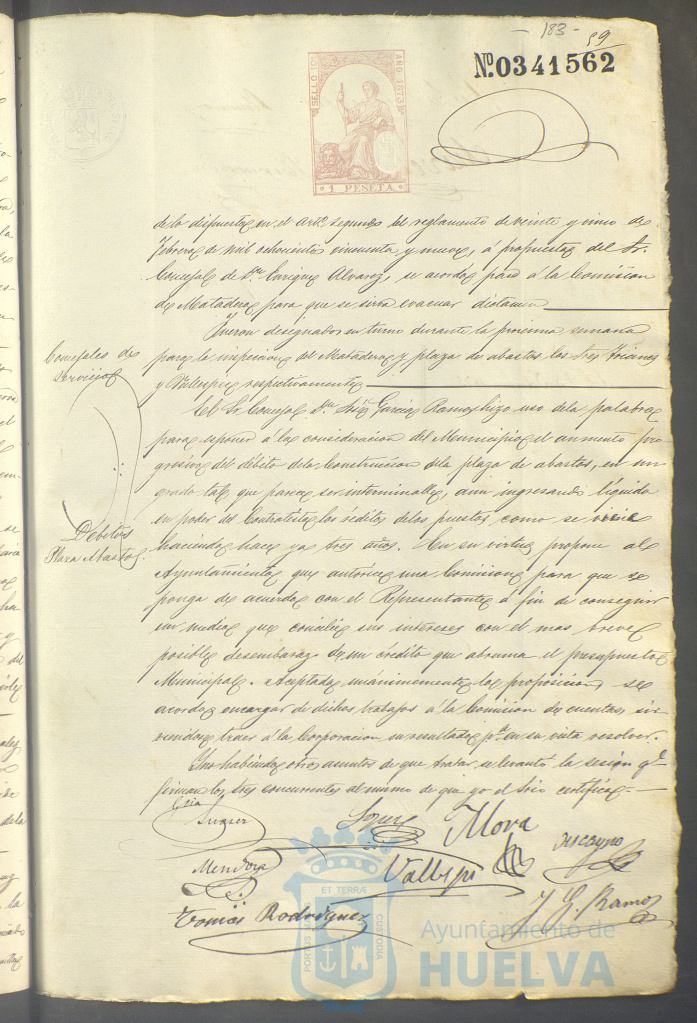 - 183 -
59
Nº 0341562
SELLO 10º
AÑO 1873
1 PESETA
de lo dispuesto en el artº segundo del reglamento de veinte y cinco de
Febrero de mil ochocientos cincuenta y nueve, á propuesta del Sr.
Concejal de Dn Enrique Alvarez, se acordó pase á la Comision
de Matadero para que se sirva evacuar dictamen
Fueron designados en turno durante la proxima semana
para la inspeccion del Matadero y plaza de abastos los Sres
y respectivamente
Concejales de
servicio
El Sr Concejal Dn José Garcia Ramos hizo uso de la palabra
para esponer á la consideracion del Municipio el aumento pro
gresivo del débito de la Construccion de la plaza de abastos, en un
grado tal que parece ser interminable, aun ingresando líquido
en poder del Contratista los réditos de los puestos, como se viene
haciendo hace ya tres años. En su virtud propone al
Debitos
Plaza Abastos
Ayuntamiento que autorice una Comision para que se
ponga de acuerdo con el Representante á fin de conseguir
un medio que concilie sus intereses con el mas breve
posible desembarazo de un credito que abruma el presupuesto
Municipal. Aceptada unanimemente la proposicion se
acordó encargar de dichos trabajos á la Comision de cuentas, sir
viendose traer á la Corporacion su resultado pa. en su vista resolver.
Y no habiendo otros asuntos de que tratar, se levantó la sesion qe
firman los Sres concurrentes al mismo de que yo el Srio certifico.
Suarez
Lopez
Mora
Mendoza
Vallespi
Tomás Rodriguez
J. G. Ramos
ET TERRÆ
PORTUS
CUSTODIA
Ayuntamiento de
HUELVA